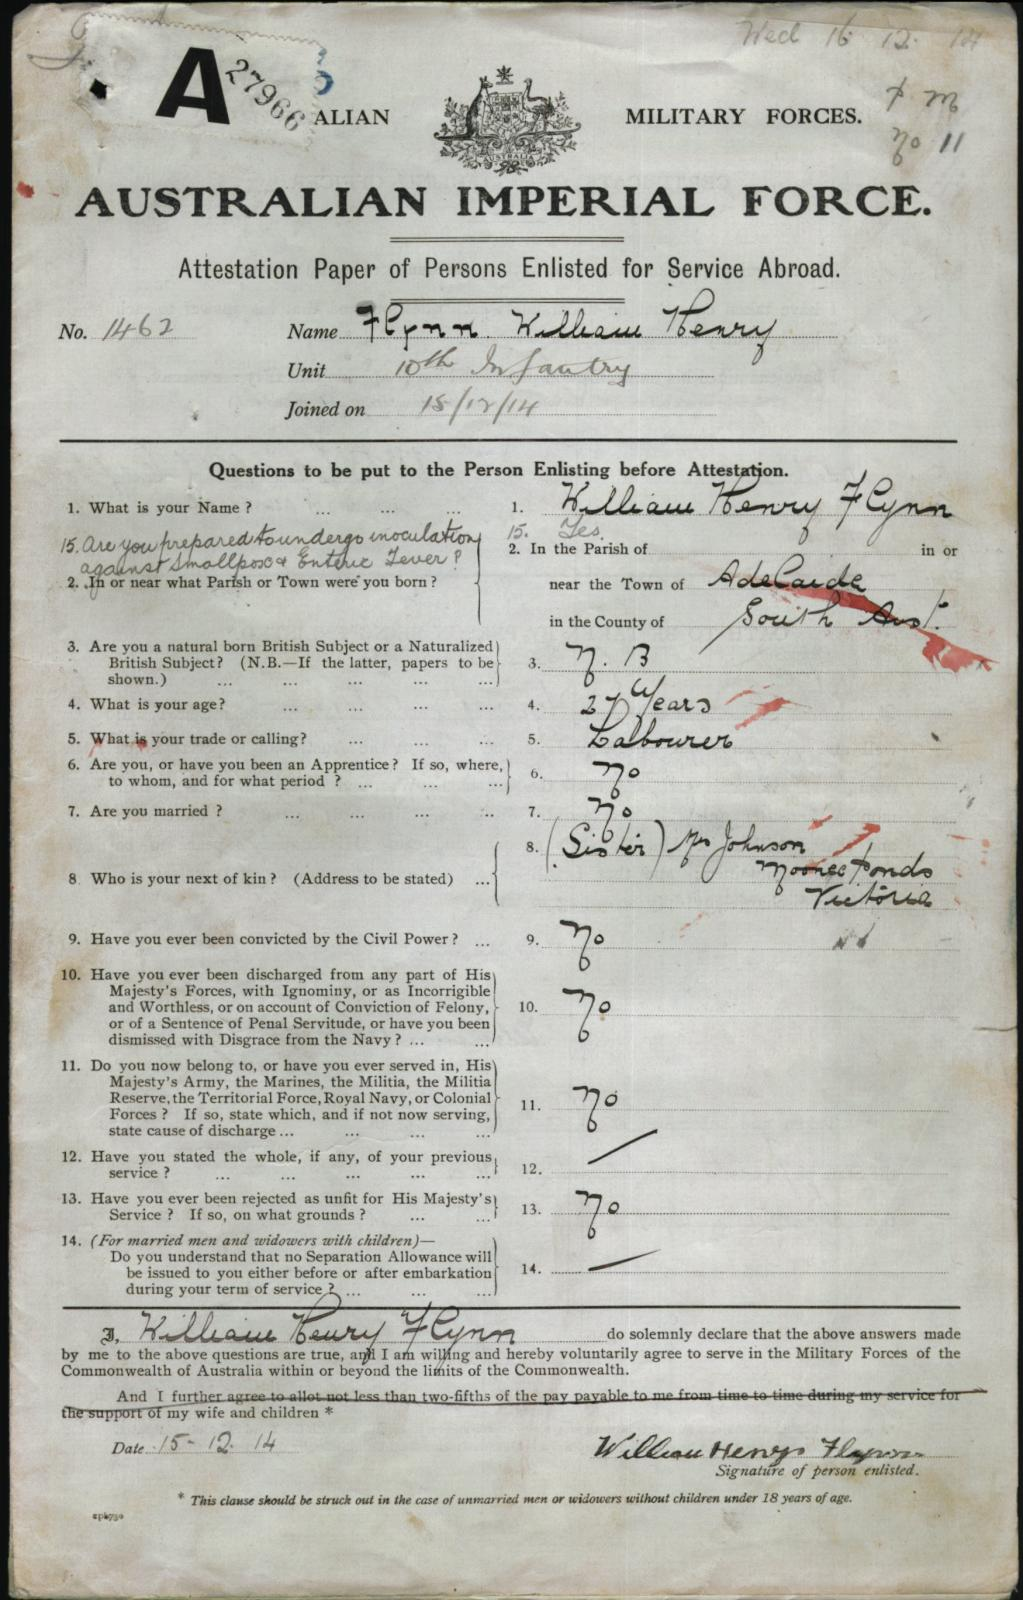 Wed 16 12. 14
A 27966
ALIAN MILITARY FORCES.
No 11
AUSTRALIA
AUSTRALIAN IMPERIAL FORCE.
Attestation Paper of Persons Enlisted for Service Abroad.
No. 1462 Name Flynn. William Henry
Unit 10th Infantry
Joined on 15/12/14
Questions to be put to the Person Enlisting before Attestation.
1. What is your Name ? ... ... ... 1. William Henry Flynn
15. Are you prepared to undergo inoculation 15. Yes
against Smallpox & Enteric Fever?
2. In or near what Parish or Town were you born ? 2. In the Parish of in or
near the Town of Adelaide
in the County of South Aust.
3. Are you a natural born British Subject or a Naturalized
British Subject? (N.B.—If the latter, papers to be
shown.) ... ... ... ... ... 3. N. B
4. What is your age? ... ... ... 4. 27 Years
5. What is your trade or calling? ... ... ... 5. Labourer
6. Are you, or have you been an Apprentice ? If so, where,
to whom, and for what period ? ... ... ... 6. No
7. Are you married ? ... ... ... .. 7. No
8 Who is your next of kin ? (Address to be stated) ... 8. (Sister) Mrs Johnson
Moonee Ponds
Victoria
9. Have you ever been convicted by the Civil Power ? ... 9. No
10. Have you ever been discharged from any part of His
Majesty's Forces, with Ignominy, or as Incorrigible
and Worthless, or on account of Conviction of Felony,
or of a Sentence of Penal Servitude, or have you been
dismissed with Disgrace from the Navy ? ... ... 10. No
11. Do you now belong to, or have you ever served in, His
Majesty's Army, the Marines, the Militia, the Militia
Reserve, the Territorial Force, Royal Navy, or Colonial
Forces ? If so, state which, and if not now serving,
state cause of discharge ... ... ... ... 11. No
12. Have you stated the whole, if any, of your previous
service ? ... ... ... ... ... 12.
13. Have you ever been rejected as unfit for His Majesty's
Service ? If so, on what grounds ? ... ... 13. No
14. (For married men and widowers with children)—
Do you understand that no Separation Allowance will
be issued to you either before or after embarkation
during your term of service ? ... ... ... 14.
I, William Henry Flynn do solemnly declare that the above answers made
by me to the above questions are true, and I am willing and hereby voluntarily agree to serve in the Military Forces of the
Commonwealth of Australia within or beyond the limits of the Commonwealth.
And I further agree to allot not less than two-fifths of the pay payable to me from time to time during my service for
the support of my wife and children *
Date 15-12.14 William Henry Flynn
Signature of person enlisted.
* This clause should be struck out in the case of unmarried men or widowers without children under 18 years of age.